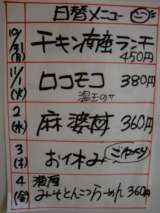 日替メニュー
10/31(月) チキン南蛮ランチ
450円
11/1(火) ロコモコ 380円
温玉のせ
2(水) 麻婆丼 360円
3(木) お休み
4(金) 濃厚
みそとんこつらーめん 360円